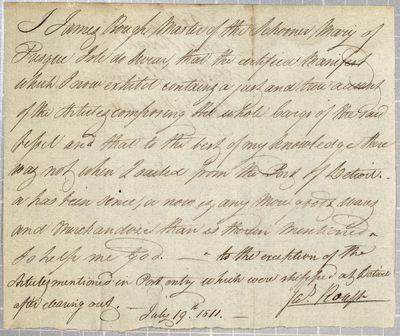 I James Rough, Master of the Schooner Mary of
Presque Isle do swear, that the certified manifest
which I now exhibit contains a just and true account
of the Articles composing the whole Cargo of the said
Vessel and that to the best of my knowledge there
was not when I sailed from the Port of Detroit
or has been since, or now is, any more goods wares
and Merchandize than is therein mentioned
So help me God. — to the exception of the
Articles mentioned in Post entry which were shipped at Detroit
after clearing out. — July 19th 1811. Jas. Rough